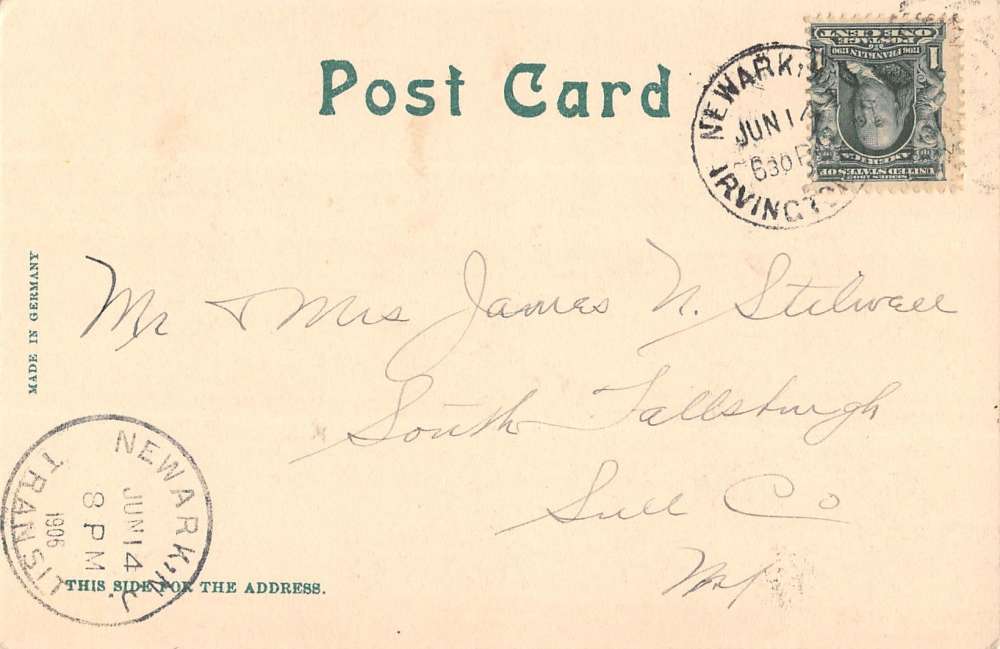 Post Card
NEWARK, N.J.
JUN 14
630 P
IRVINGTON
ONE CENT
POSTAGE
1706 FRANKLIN 1790
1 1
AMERICA
UNITED STATES OF
SERIES 1902
MADE IN GERMANY
Mr & Mrs James N. Stilwell
South Fallsburgh
Sull Co
NY
NEWARK, N.J.
JUN 14
8 PM
1906
TRANSIT
THIS SIDE FOR THE ADDRESS.